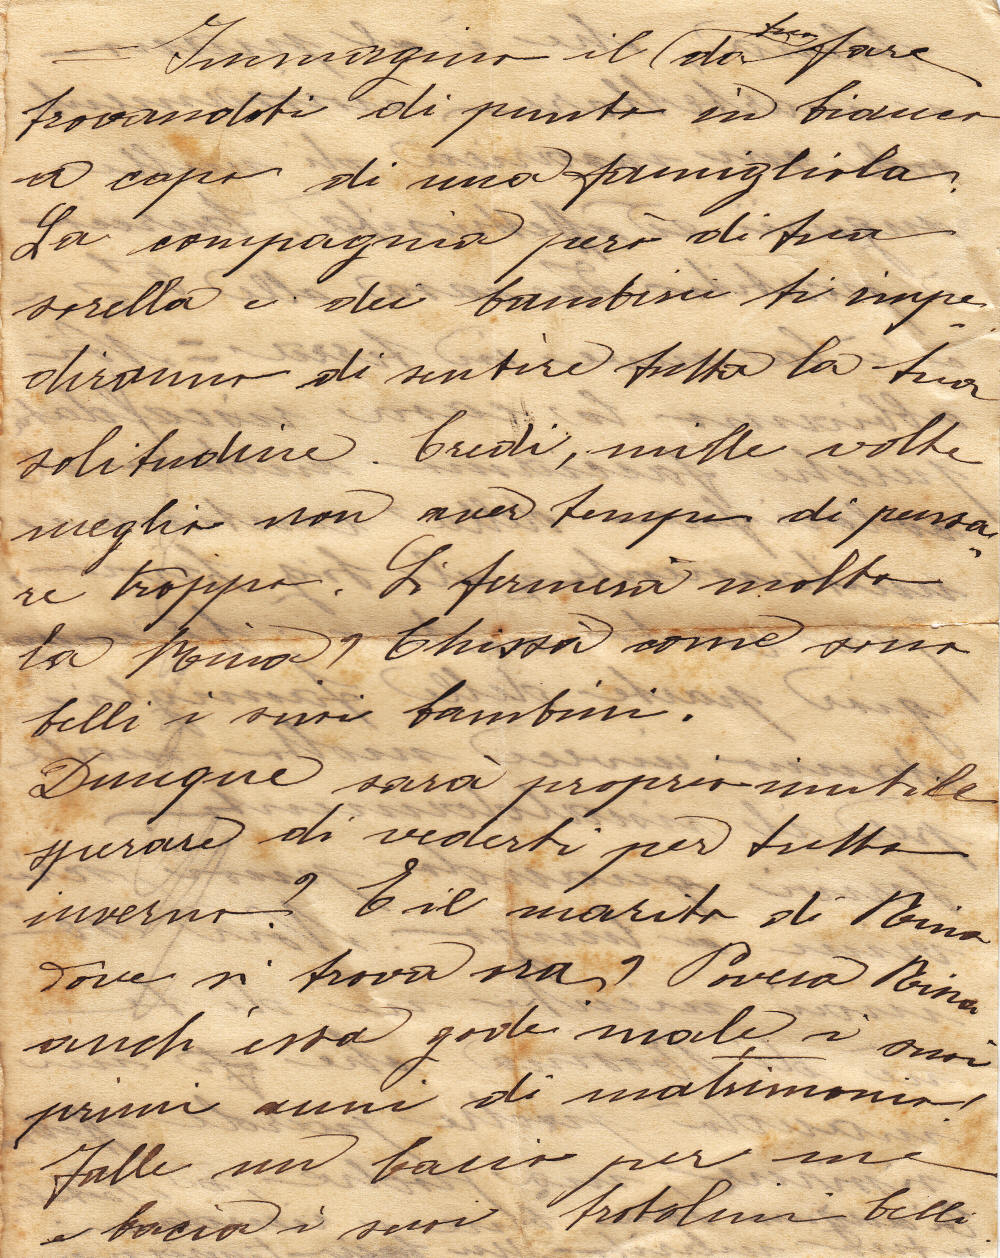 = Immagino il tuo da fare
trovandoti di punto in bianco
a capo di una famigliola.
La compagnia però di tua
sorella e dei bambini ti impe
diranno di sentire tutta la tua
solitudine. Credi, mille volte
meglio non aver tempo di pensa
re troppo. Si fermerà molto
la Nina? Chissà come sono
belli i suoi bambini.
Dunque sarà proprio inutile
sperare di vederti per tutto
inverno? E il marito di Nina
dove si trova ora? Povera Nina
anch'essa gode male i suoi
primi anni di matrimonio!
Falle un bacio per me
e bacia i suoi trotolini belli.